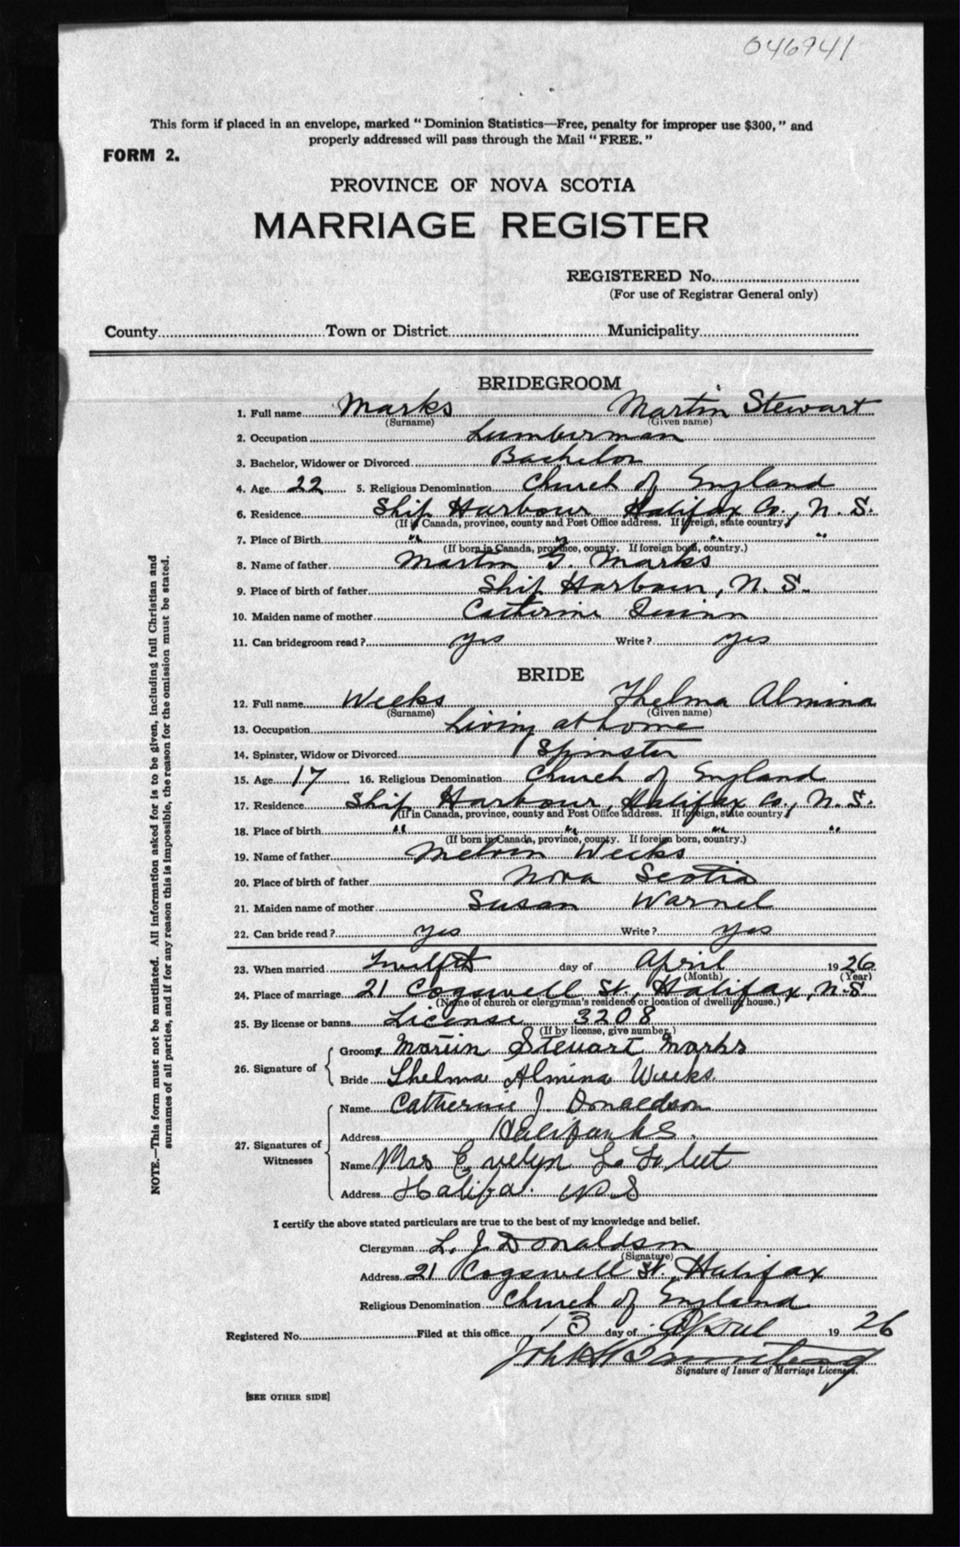 046941
This form if placed in an envelope, marked "Dominion Statistics—Free, penalty for improper use $300," and
properly addressed will pass through the Mail "FREE."
FORM 2.
PROVINCE OF NOVA SCOTIA
MARRIAGE REGISTER
REGISTERED No.
(For use of Registrar General only)
County Town or District Municipality
BRIDEGROOM
1. Full name Marks Martin Stewart
(Surname) (Given name)
2. Occupation Lumberman
3. Bachelor, Widower or Divorced Bachelor
4. Age 22 5. Religious Denomination Church of England
6. Residence Ship Harbour Halifax Co., N. S.
(If in Canada, province, county and Post Office address. If foreign, state country)
7. Place of Birth " " " "
(If born in Canada, province, county. If foreign born, country.)
8. Name of father Martin G. Marks
9. Place of birth of father Ship Harbour, N. S.
10. Maiden name of mother Catherine Quinn
11. Can bridegroom read? yes Write? yes
BRIDE
12. Full name Weeks Thelma Almina
(Surname) (Given name)
13. Occupation Living at home
14. Spinster, Widow or Divorced Spinster
15. Age 17 16. Religious Denomination Church of England
17. Residence Ship Harbour, Halifax Co., N. S.
(If in Canada, province, county and Post Office address. If foreign, state country)
18. Place of birth " " " "
(If born in Canada, province, county. If foreign born, country.)
19. Name of father Melvin Weeks
20. Place of birth of father Nova Scotia
21. Maiden name of mother Susan Warnel
22. Can bride read? yes Write? yes
23. When married Twelfth day of April 1926
(Month) (Year)
24. Place of marriage 21 Cogswell St., Halifax, N.S.
(Name of church or clergyman's residence or location of dwelling house.)
25. By license or banns License 3208
(If by license, give number.)
26. Signature of
Groom Martin Stewart Marks
Bride Thelma Almina Weeks
27. Signatures of Witnesses
Name Catherine J. Donaldson
Address Halifax N.S.
Name Mrs Evelyn L.
Address Halifax N S
I certify the above stated particulars are true to the best of my knowledge and belief.
Clergyman L. J. Donaldson
(Signature)
Address 21 Cogswell St., Halifax
Religious Denomination Church of England
Registered No. Filed at this office 13 day of April 1926
John H
Signature of Issuer of Marriage Licenses.
[SEE OTHER SIDE]
NOTE.—This form must not be mutilated. All information asked for is to be given, including full Christian and
surnames of all parties, and if for any reason this is impossible, the reason for the omission must be stated.